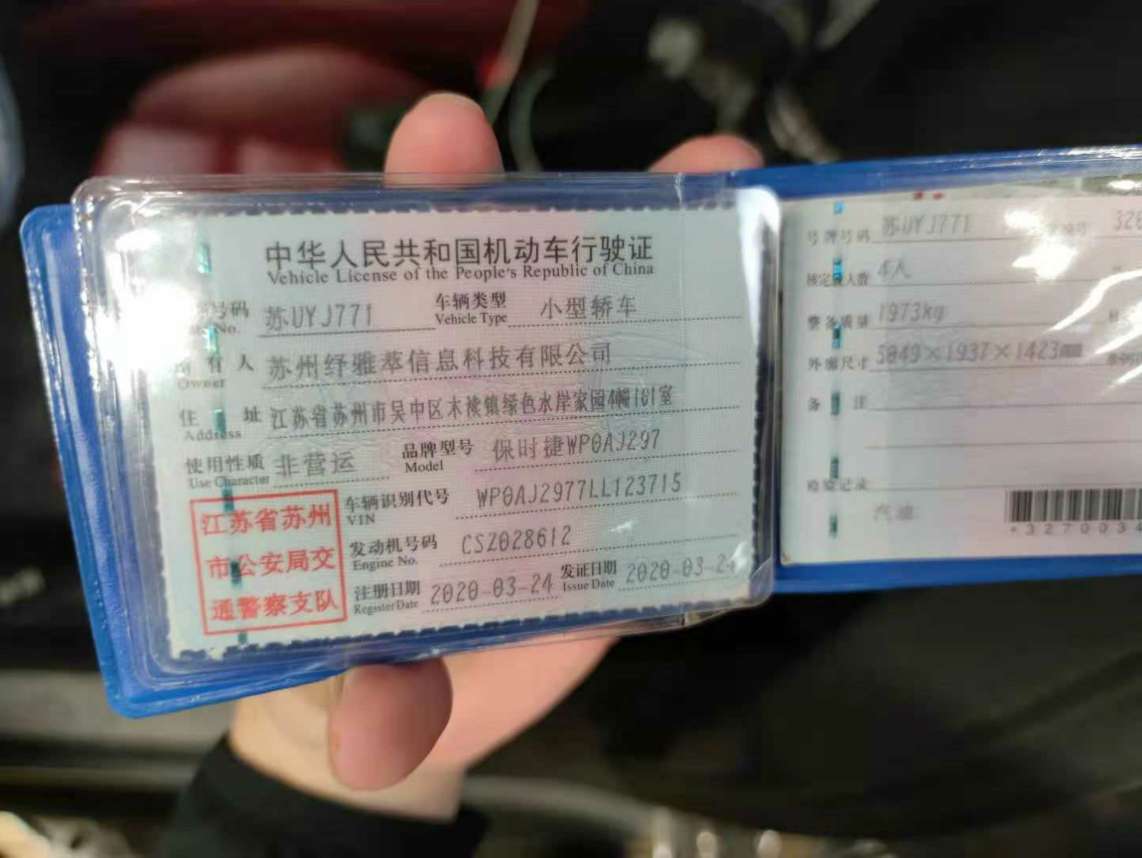 中华人民共和国机动车行驶证
Vehicle License of the People's Republic of China
号码 苏UYJ771 车辆类型 小型轿车
No. Vehicle Type
有人 苏州纾雅萃信息科技有限公司
Owner
住 址 江苏省苏州市吴中区木渎镇绿色水岸家园4幢101室
Address
使用性质 非营运 品牌型号 保时捷WP0AJ297
Use Character Model
江苏省苏州
市公安局交
通警察支队
车辆识别代号 WP0AJ2977LL123715
VIN
发动机号码 CSZ028612
Engine No.
注册日期 2020-03-24 发证日期 2020-03-24
Register Date Issue Date
号牌号码 苏UYJ771
核定载人数 4人
整备质量 1973kg
外廓尺寸 5049×1937×1423mm
备 注
检验记录
汽油
*327003